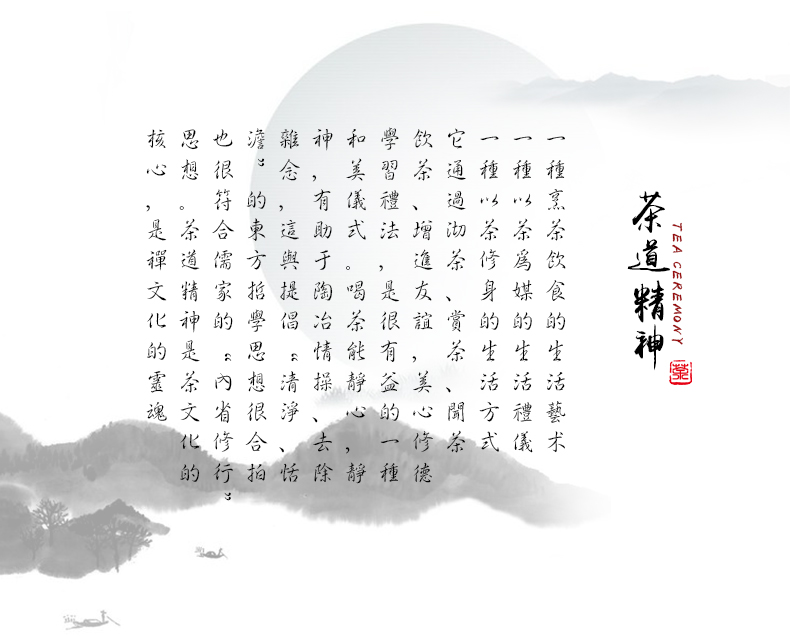 茶道精神
TEA CEREMONY
茶
一種烹茶飲食的生活藝术
一種以茶爲媒的生活禮儀
一種以茶修身的生活方式
它通過沏茶、賞茶、聞茶
飲茶、增進友誼，美心修德
學習禮法，是很有益的一種
和美儀式。喝茶能靜心，靜
神，有助于陶冶情操、去除
雜念，這與提倡“清淨、恬
澹”的東方哲學思想很合拍
也很符合儒家的“內省修行”
思想。茶道精神是茶文化的
核心，是禪文化的靈魂